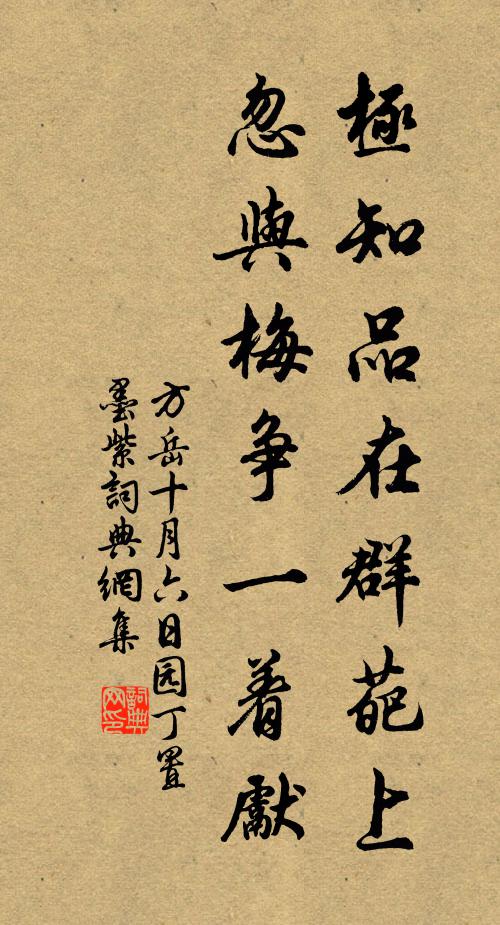 極知品在群葩上
忽與梅争一着獻
方岳十月六日园丁置
墨紫詞典網集
詞典网印